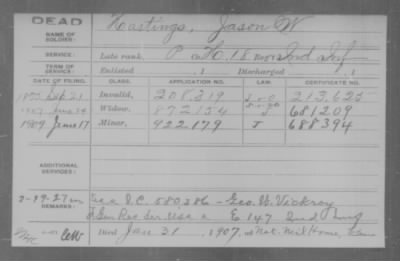 DEAD
NAME OF SOLDIER: Hastings, Jason W
SERVICE: Late rank, P Co. K, 18 Reg't Ind Inf
TERM OF SERVICE: Enlisted 1 Discharged 1
DATE OF FILING. CLASS. APPLICATION NO. LAW. CERTIFICATE NO.
Sep 21 Invalid, 208,319 213,625
1907 Widow, 872154 681209
1909 June 17 Minor, 922,179 J 688394
ADDITIONAL SERVICES:
REMARKS: D.C. 580,386 - Geo. W. Vickroy
E 147 Ind Inf
Died Jan 31, 1907, at Nat. Mil Home,